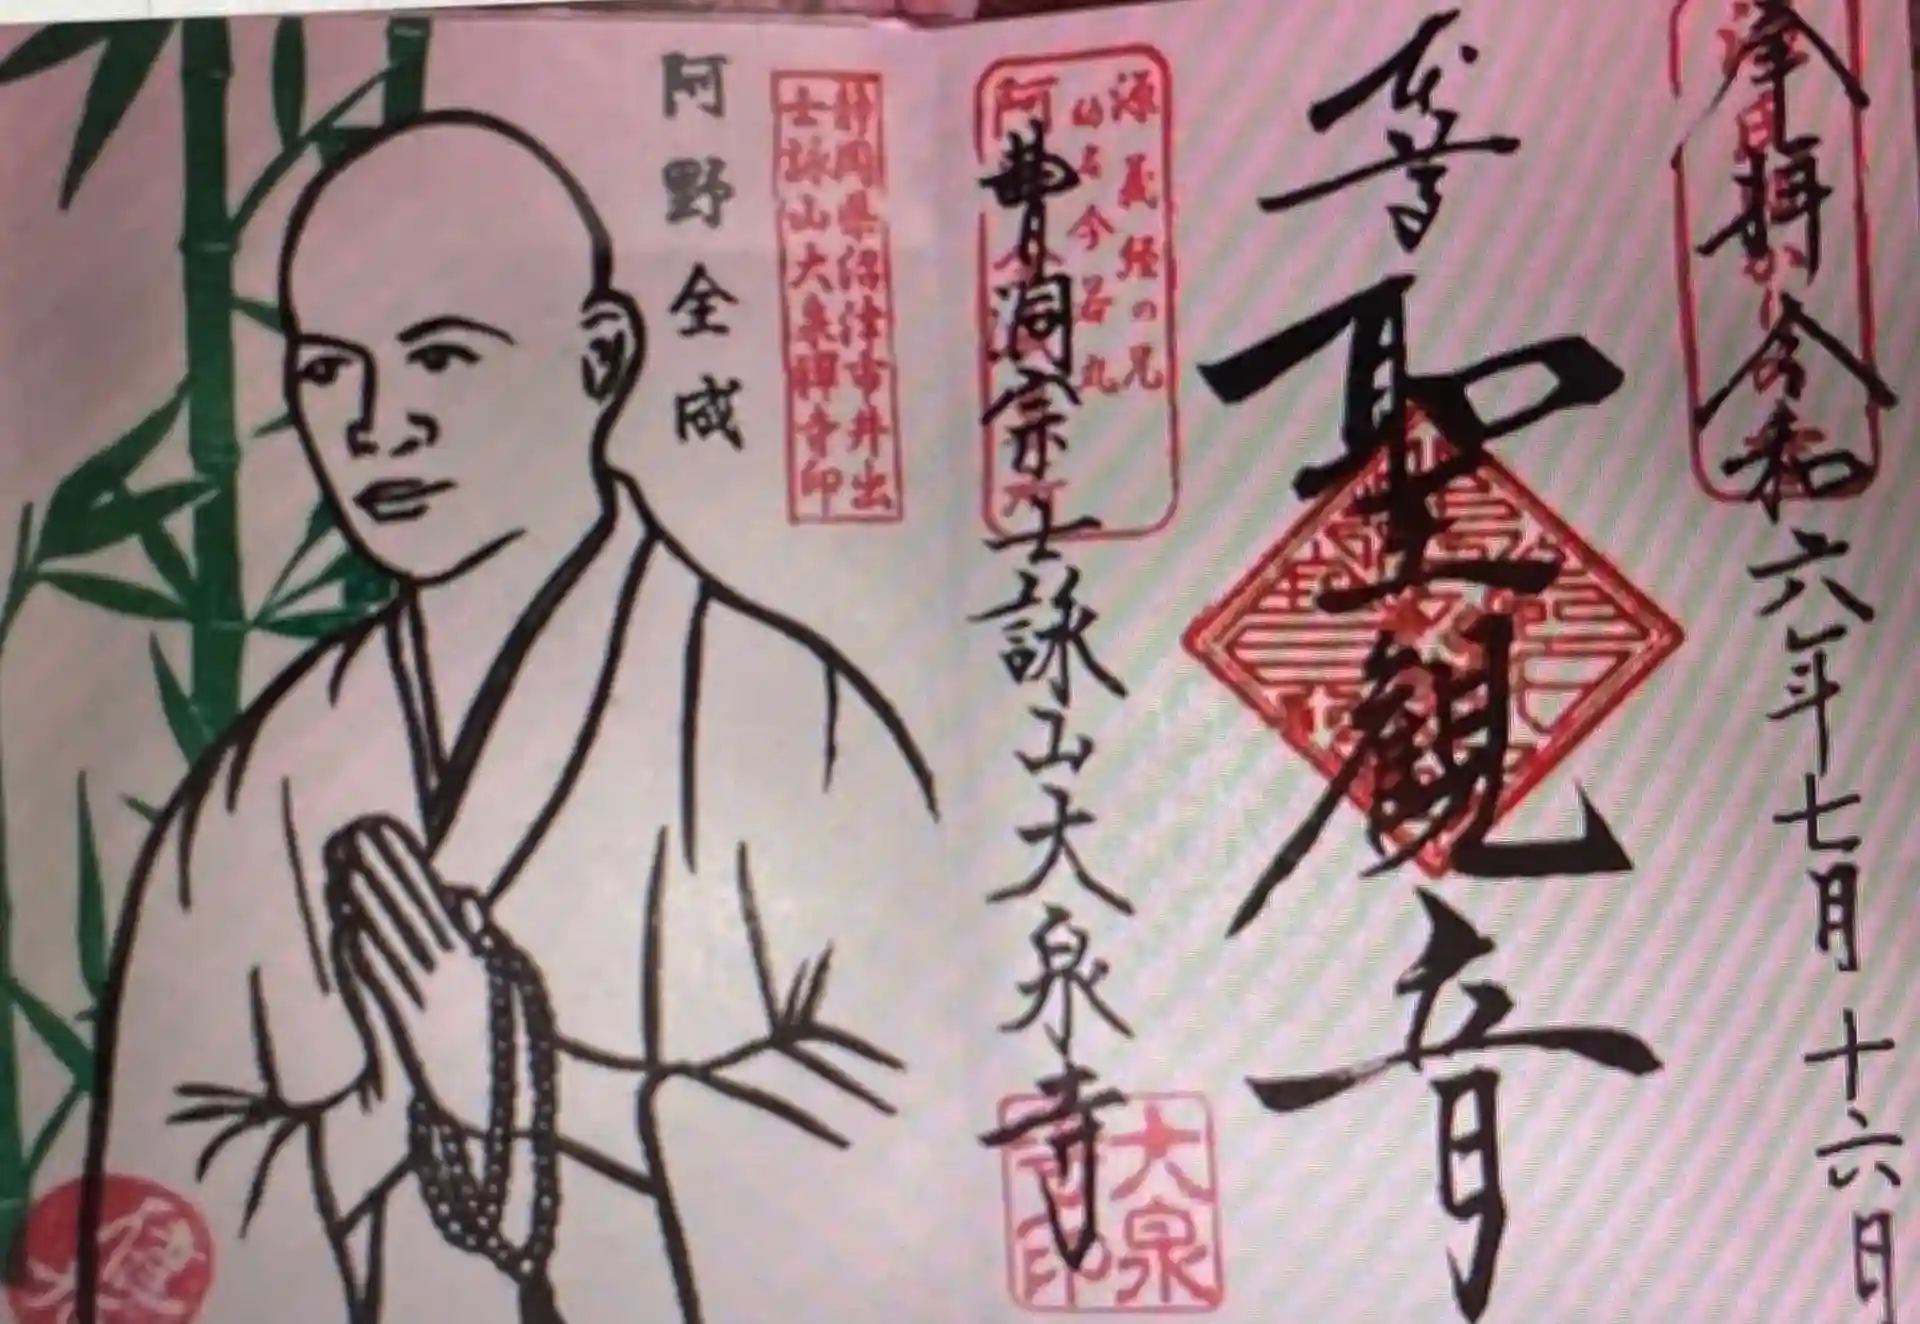 奉拝 令和六年七月十六日
本尊 聖観音
源義経の兄
幼名今若丸
曹洞宗 士詠山大泉寺
大泉
寺印
静岡県沼津市井出
士詠山大泉禪寺印
阿野全成